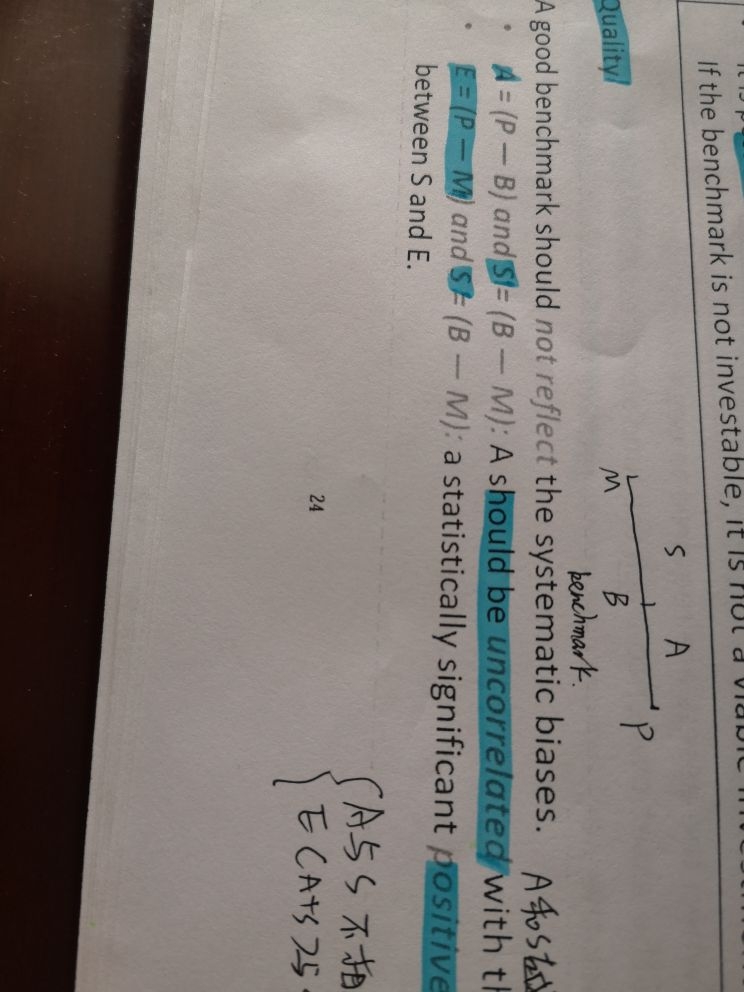 If the benchmark is not investable, it is not a viable
Quality
A good benchmark should not reflect the systematic biases.
• A = (P — B) and S = (B — M): A should be uncorrelated with
• E = (P — M) and S = (B — M): a statistically significant positive
between S and E.
M S B A P
benchmark.
A与S不相
E(A+S)与S
24